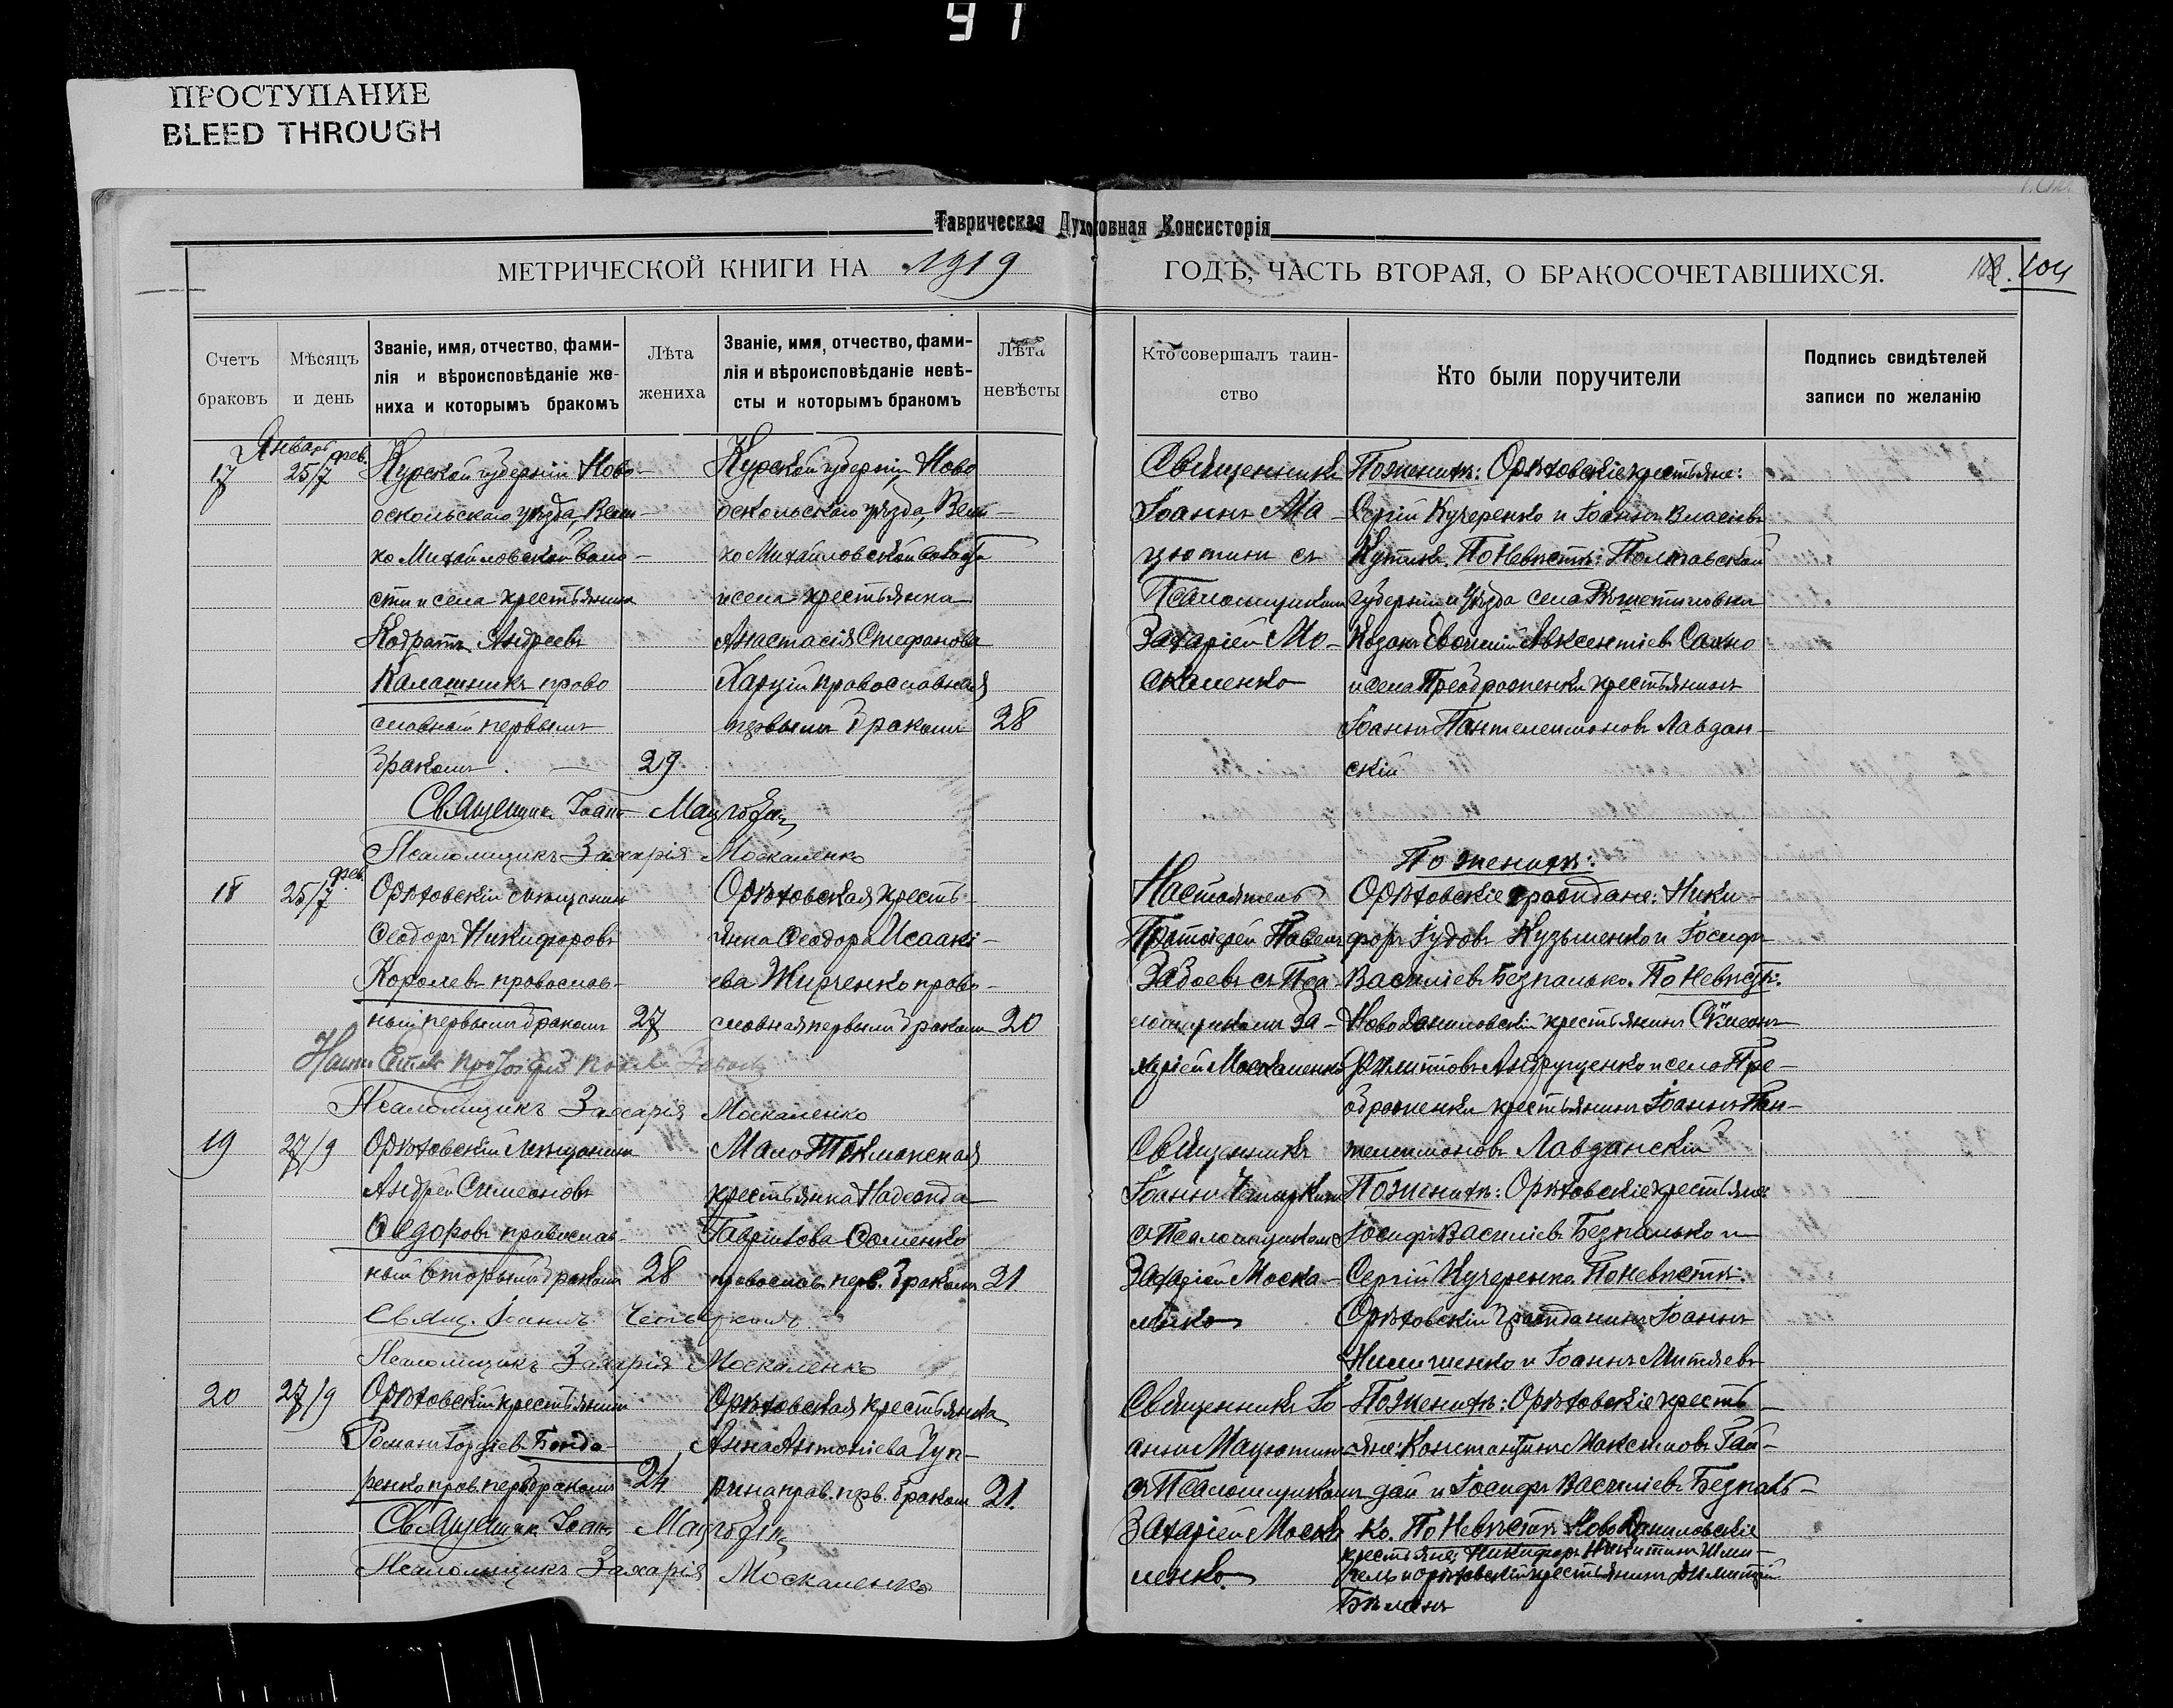 91
ПРОСТУПАНИЕ
BLEED THROUGH
Таврическая Духовная Консисторія
МЕТРИЧЕСКОЙ КНИГИ НА 1919 ГОДЪ, ЧАСТЬ ВТОРАЯ, О БРАКОСОЧЕТАВШИХСЯ.
104
Счетъ браковъ
Мѣсяцъ и день
Званіе, имя, отчество, фами-
лія и вѣроисповѣданіе же-
ниха и которымъ бракомъ
Лѣта жениха
Званіе, имя, отчество, фами-
лія и вѣроисповѣданіе невѣ-
сты и которымъ бракомъ
Лѣта невѣсты
Кто совершалъ таин-
ство
Кто были поручители
Подпись свидѣтелей
записи по желанію
Январь фев.
17
25/7
Курской губерніи Ново-
оскольскаго уѣзда, Вели-
ко Михайловской воло-
сти и села крестьянинъ
Кодратъ Андреевъ
Калашникъ право
славный первымъ
бракомъ
29
Курской губерніи Ново
оскольскаго уѣзда, Вели-
ко Михайловской волости
и села крестьянка
Анастасія Стефанова
православная
первымъ бракомъ
28
Священникъ
Іоаннъ Ма-
цютинъ съ
Псаломщикомъ
Захаріей Мо-
скаленко
По женихѣ: Орѣховскіе крестьяне:
Сергій Кучеренко и Іоаннъ Власіевъ
По Невѣстѣ: Полтавской
губерніи и уѣзда села Рѣшетиловки
Козакъ Евфимій Авксентіевъ Сахно
и села Преображенки крестьянинъ
Іоаннъ Пантелеимоновъ Лавдан-
скій
Священникъ Іоаннъ Мацютинъ
Псаломщикъ Захарія Москаленко
18
25/7 фев.
Орѣховскій мѣщанинъ
Ѳеодоръ Никифоровъ
Королевъ православ-
ный первымъ бракомъ
27
Орѣховская кресть-
янка Ѳеодора Исаакі-
ева Жирченко право-
славная первымъ бракомъ
20
Настоятель
Протоіерей Павелъ
Забаевъ съ Пса-
ломщикомъ За-
харіей Москаленко
По женихѣ:
Орѣховскіе граждане: Ники-
форъ Іудовъ Кузьменко и Іосифъ
Василіевъ Безпалько. По Невѣстѣ:
Ново Даниловскій крестьянинъ Сѵмеонъ
Филипповъ Андрущенко и села Пре-
ображенки крестьянинъ Іоаннъ Пан-
телеимоновъ Лавданскій
Псаломщикъ Захарія Москаленко
19
27/9
Орѣховскій мѣщанинъ
Андрей Симеоновъ
Ѳедоровъ православ-
ный вторымъ бракомъ
28
Мало Токмакская
крестьянка Надежда
Гавріилова Ѳоменко
православ. перв. бракомъ
21.
Священникъ
Іоаннъ
съ Псаломщикомъ
Захаріей Моска-
ленко
По женихѣ: Орѣховскіе крестьяне
Іосифъ Василіевъ Безпалько и
Сергій Кучеренко. По невѣстѣ:
Орѣховскій гражданинъ Іоаннъ
и Іоаннъ Митяевъ
Свящ. Іоаннъ
Псаломщикъ Захарія Москаленко
20
27/9
Орѣховскій крестьянинъ
Романъ Гордіевъ Бонда-
ренко прав. перв. бракомъ
24
Орѣховская крестьянка
Анна Антоніева Чуп-
рина прав. перв. бракомъ
21.
Священникъ Іо-
аннъ Мацютинъ
съ Псаломщикомъ
Захаріей Моска-
ленко
По женихѣ: Орѣховскіе кресть-
яне: Константинъ Максимовъ Гай-
дай и Іосифъ Василіевъ Безпаль-
ко. По Невѣстѣ Ново Даниловскіе
крестьяне: Никифоръ Никитинъ
и орѣховскій крестьянинъ Димитрій
Священникъ Іоаннъ Мацютинъ
Псаломщикъ Захарія Москаленко